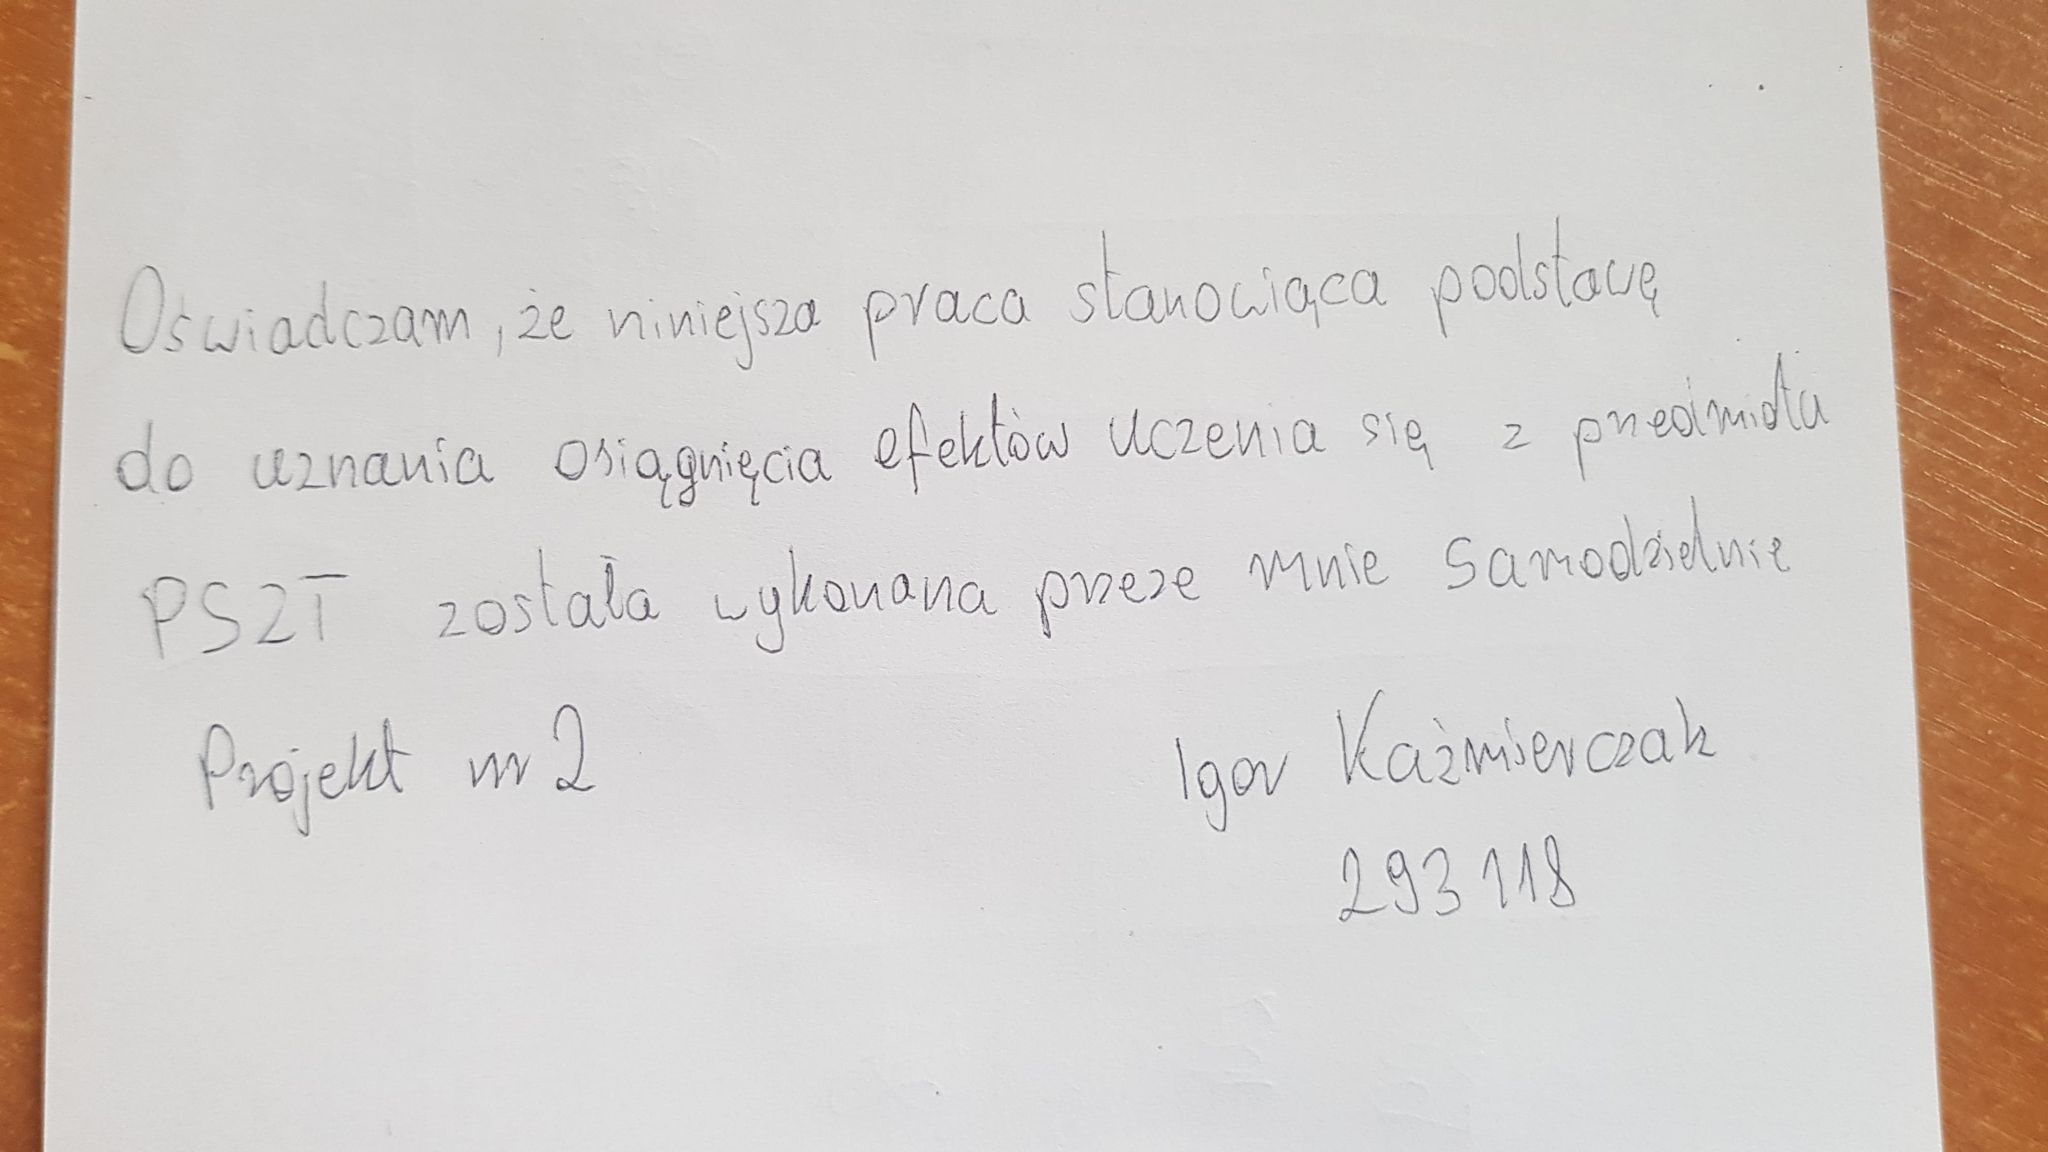 Oświadczam, że niniejsza praca stanowiąca podstawę
do uznania osiągnięcia efektów uczenia się z przedmiotu
PSZT została wykonana przeze mnie samodzielnie
Projekt nr 2
Igor Kaźmierczak
293118